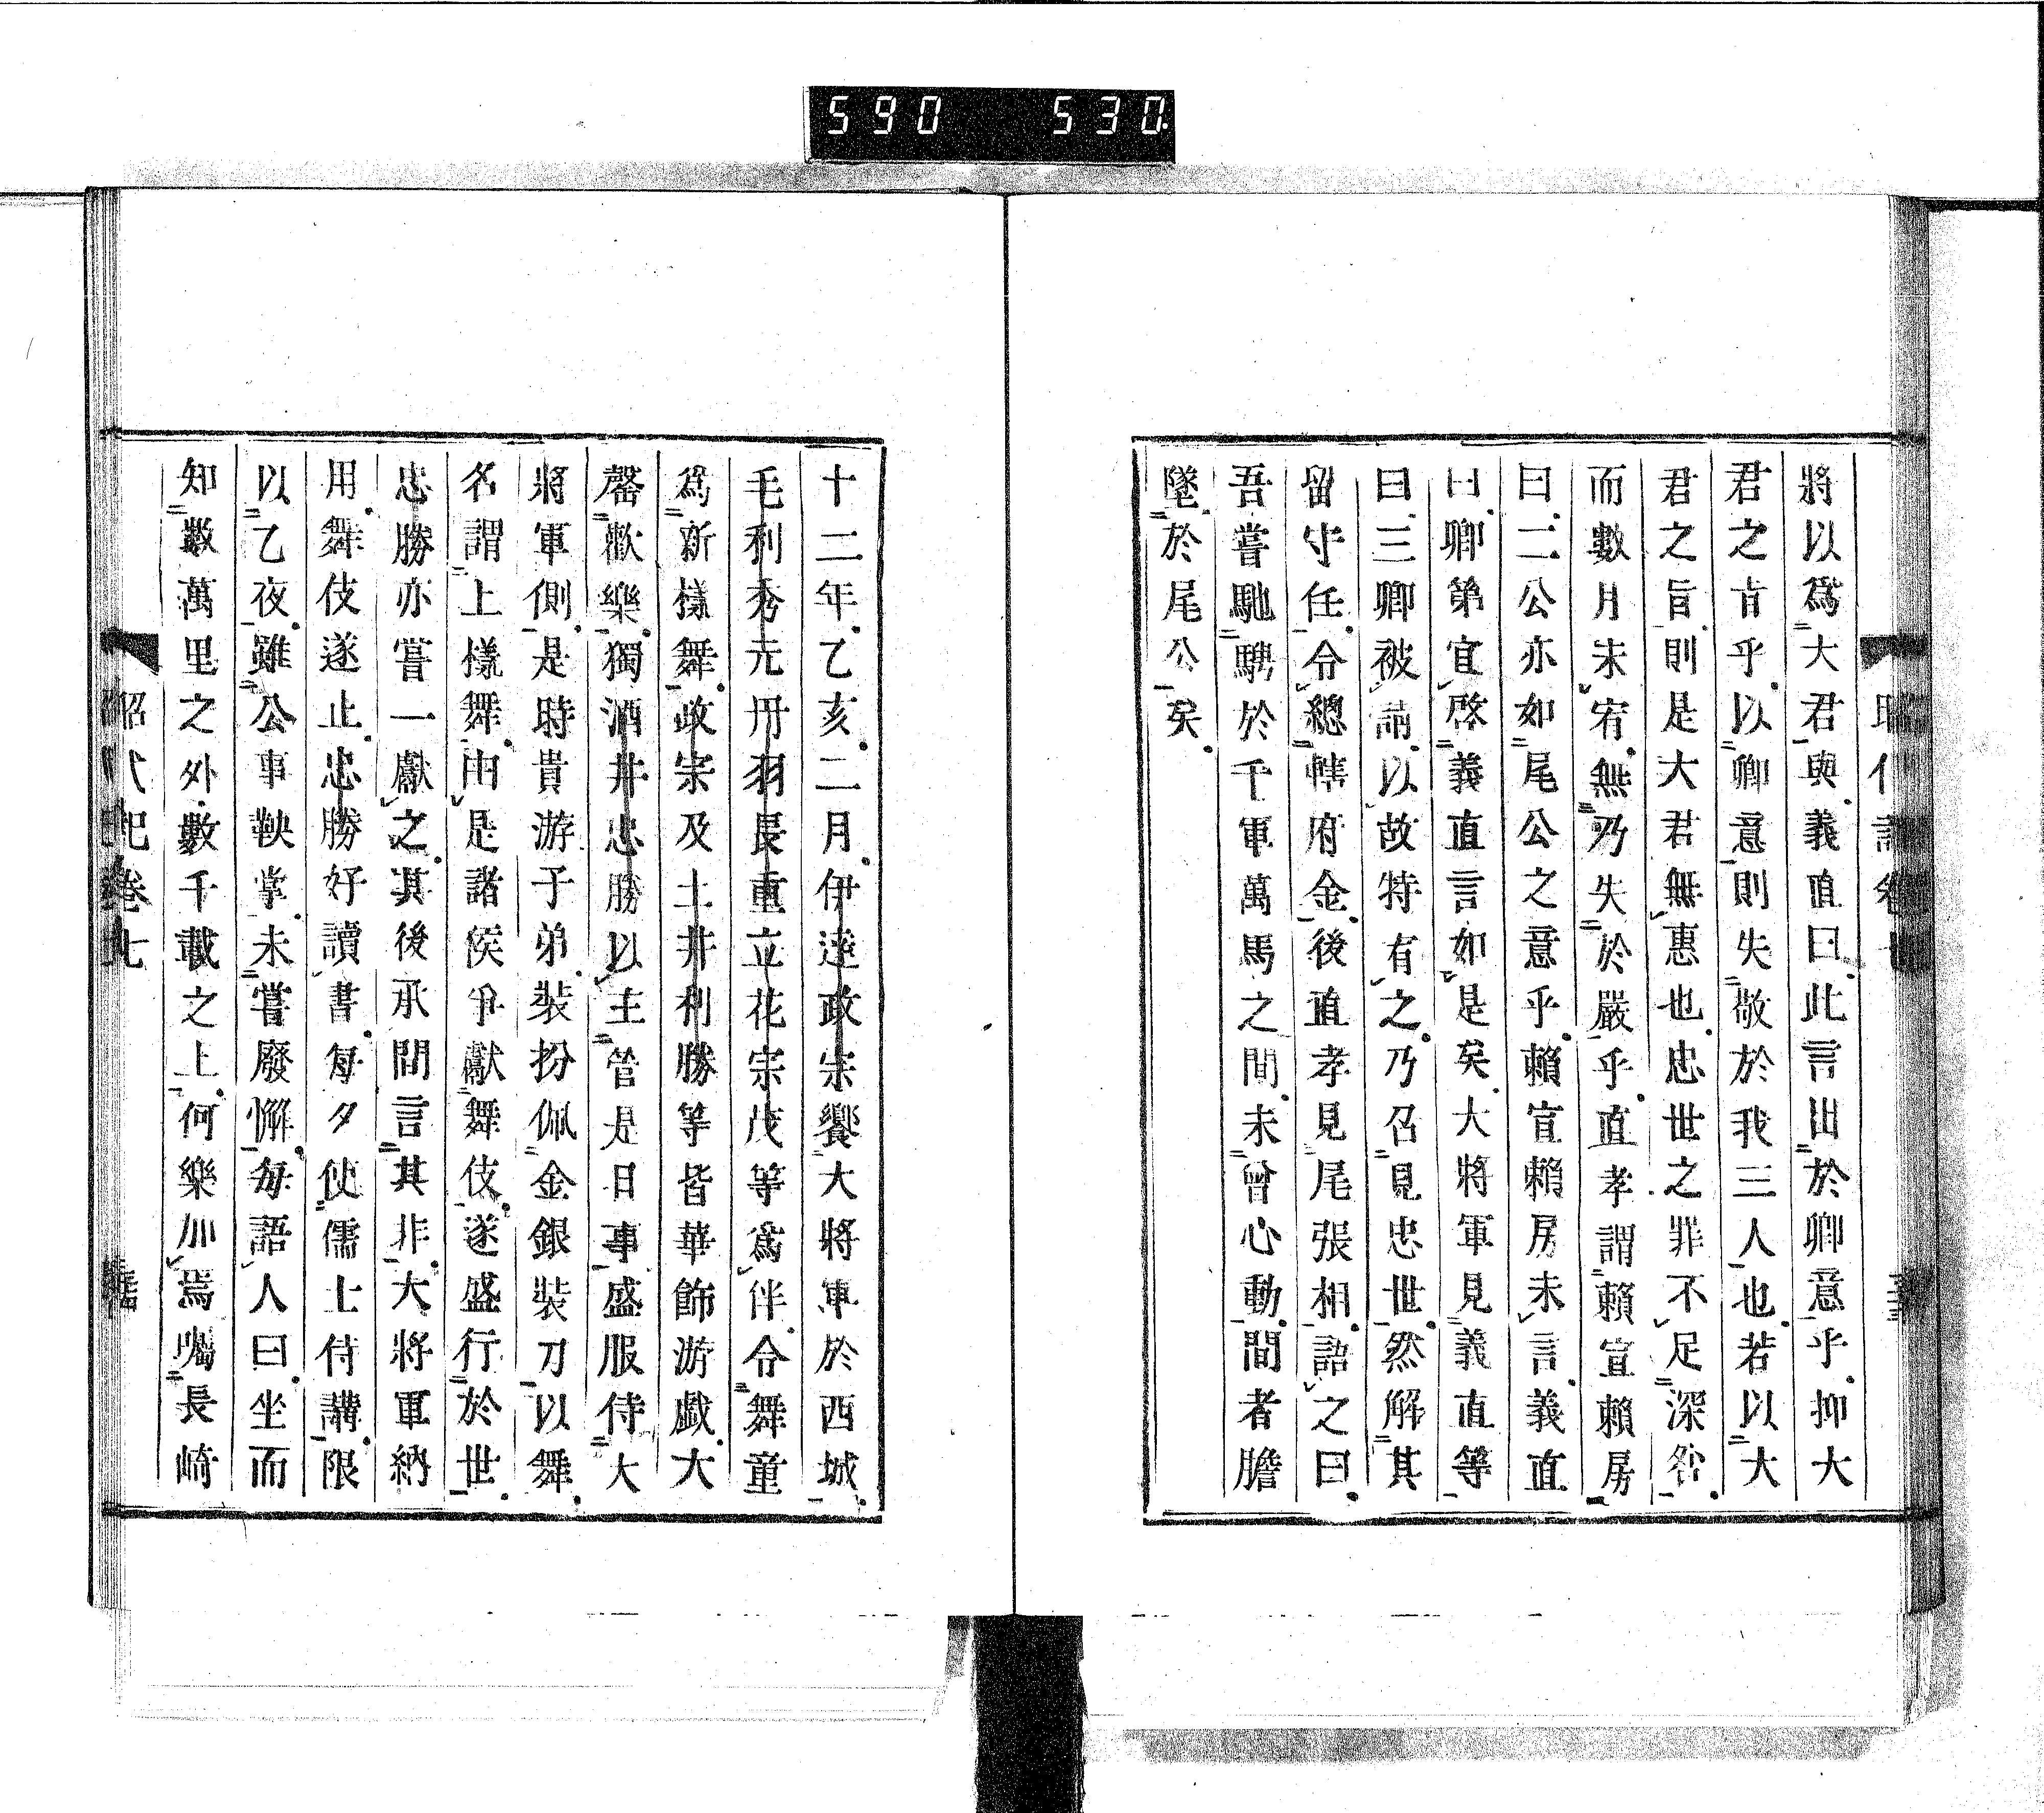 590 530.
將以爲大君與義直曰此言出於卿意乎抑大
君之旨乎以卿意則失敬於我三人也若以大
君之旨則是大君無惠也忠世之罪不足深咎
而數月未宥無乃失於嚴乎直孝謂賴宣賴房
曰二公亦如尾公之意乎賴宣賴房未言義直
曰卿第宜啓義直言如是矣大將軍見義直等
曰三卿被請以故特有之乃召見忠世然解其
留守任令總轄府金後直孝見尾張相語之曰
吾嘗馳騁於千軍萬馬之間未曾心動間者膽
墜於尾公矣
十二年乙亥二月伊達政宗饗大將軍於西城
毛利秀元丹羽長重立花宗茂等爲伴令舞童
爲新樣舞政宗及土井利勝等皆華飾游戲大
罄歡樂獨酒井忠勝以主管是日事盛服侍大
將軍側是時貴游子弟裝扮佩金銀裝刀以舞
名謂上樣舞由是諸侯爭獻舞伎遂盛行於世
忠勝亦嘗一獻之其後承間言其非大將軍納
用舞伎遂止忠勝好讀書每夕使儒士侍講限
以乙夜雖公事鞅掌未嘗廢懈每語人曰坐而
知數萬里之外數千載之上何樂加焉囑長崎
昭代記卷七